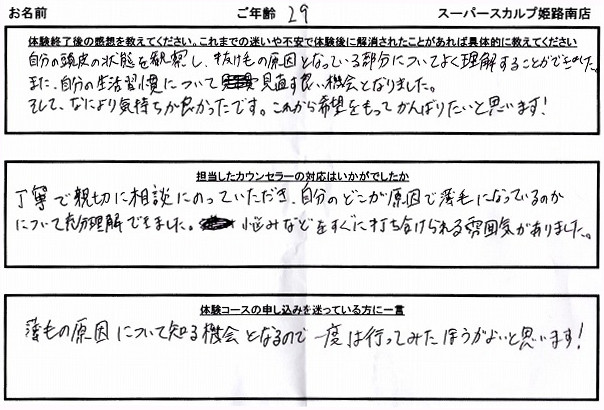 お名前 ご年齢 29 スーパースカルプ姫路南店
体験終了後の感想を教えてください。これまでの迷いや不安で体験後に解消されたことがあれば具体的に教えてください
自分の頭皮の状態を観察し、抜け毛の原因となっている部分についてよく理解することができました。
また、自分の生活習慣について見直す良い機会となりました。
そして、なにより気持ちが良かったです。これから希望をもってがんばりたいと思います!
担当したカウンセラーの対応はいかがでしたか
丁寧で親切に相談にのっていただき、自分のどこが原因で薄毛になっているのか
について充分理解できました。悩みなどをすぐに打ち分けられる雰囲気がありました。
体験コースの申し込みを迷っている方に一言
薄毛の原因について知る機会となるので一度は行ってみたほうがよいと思います!